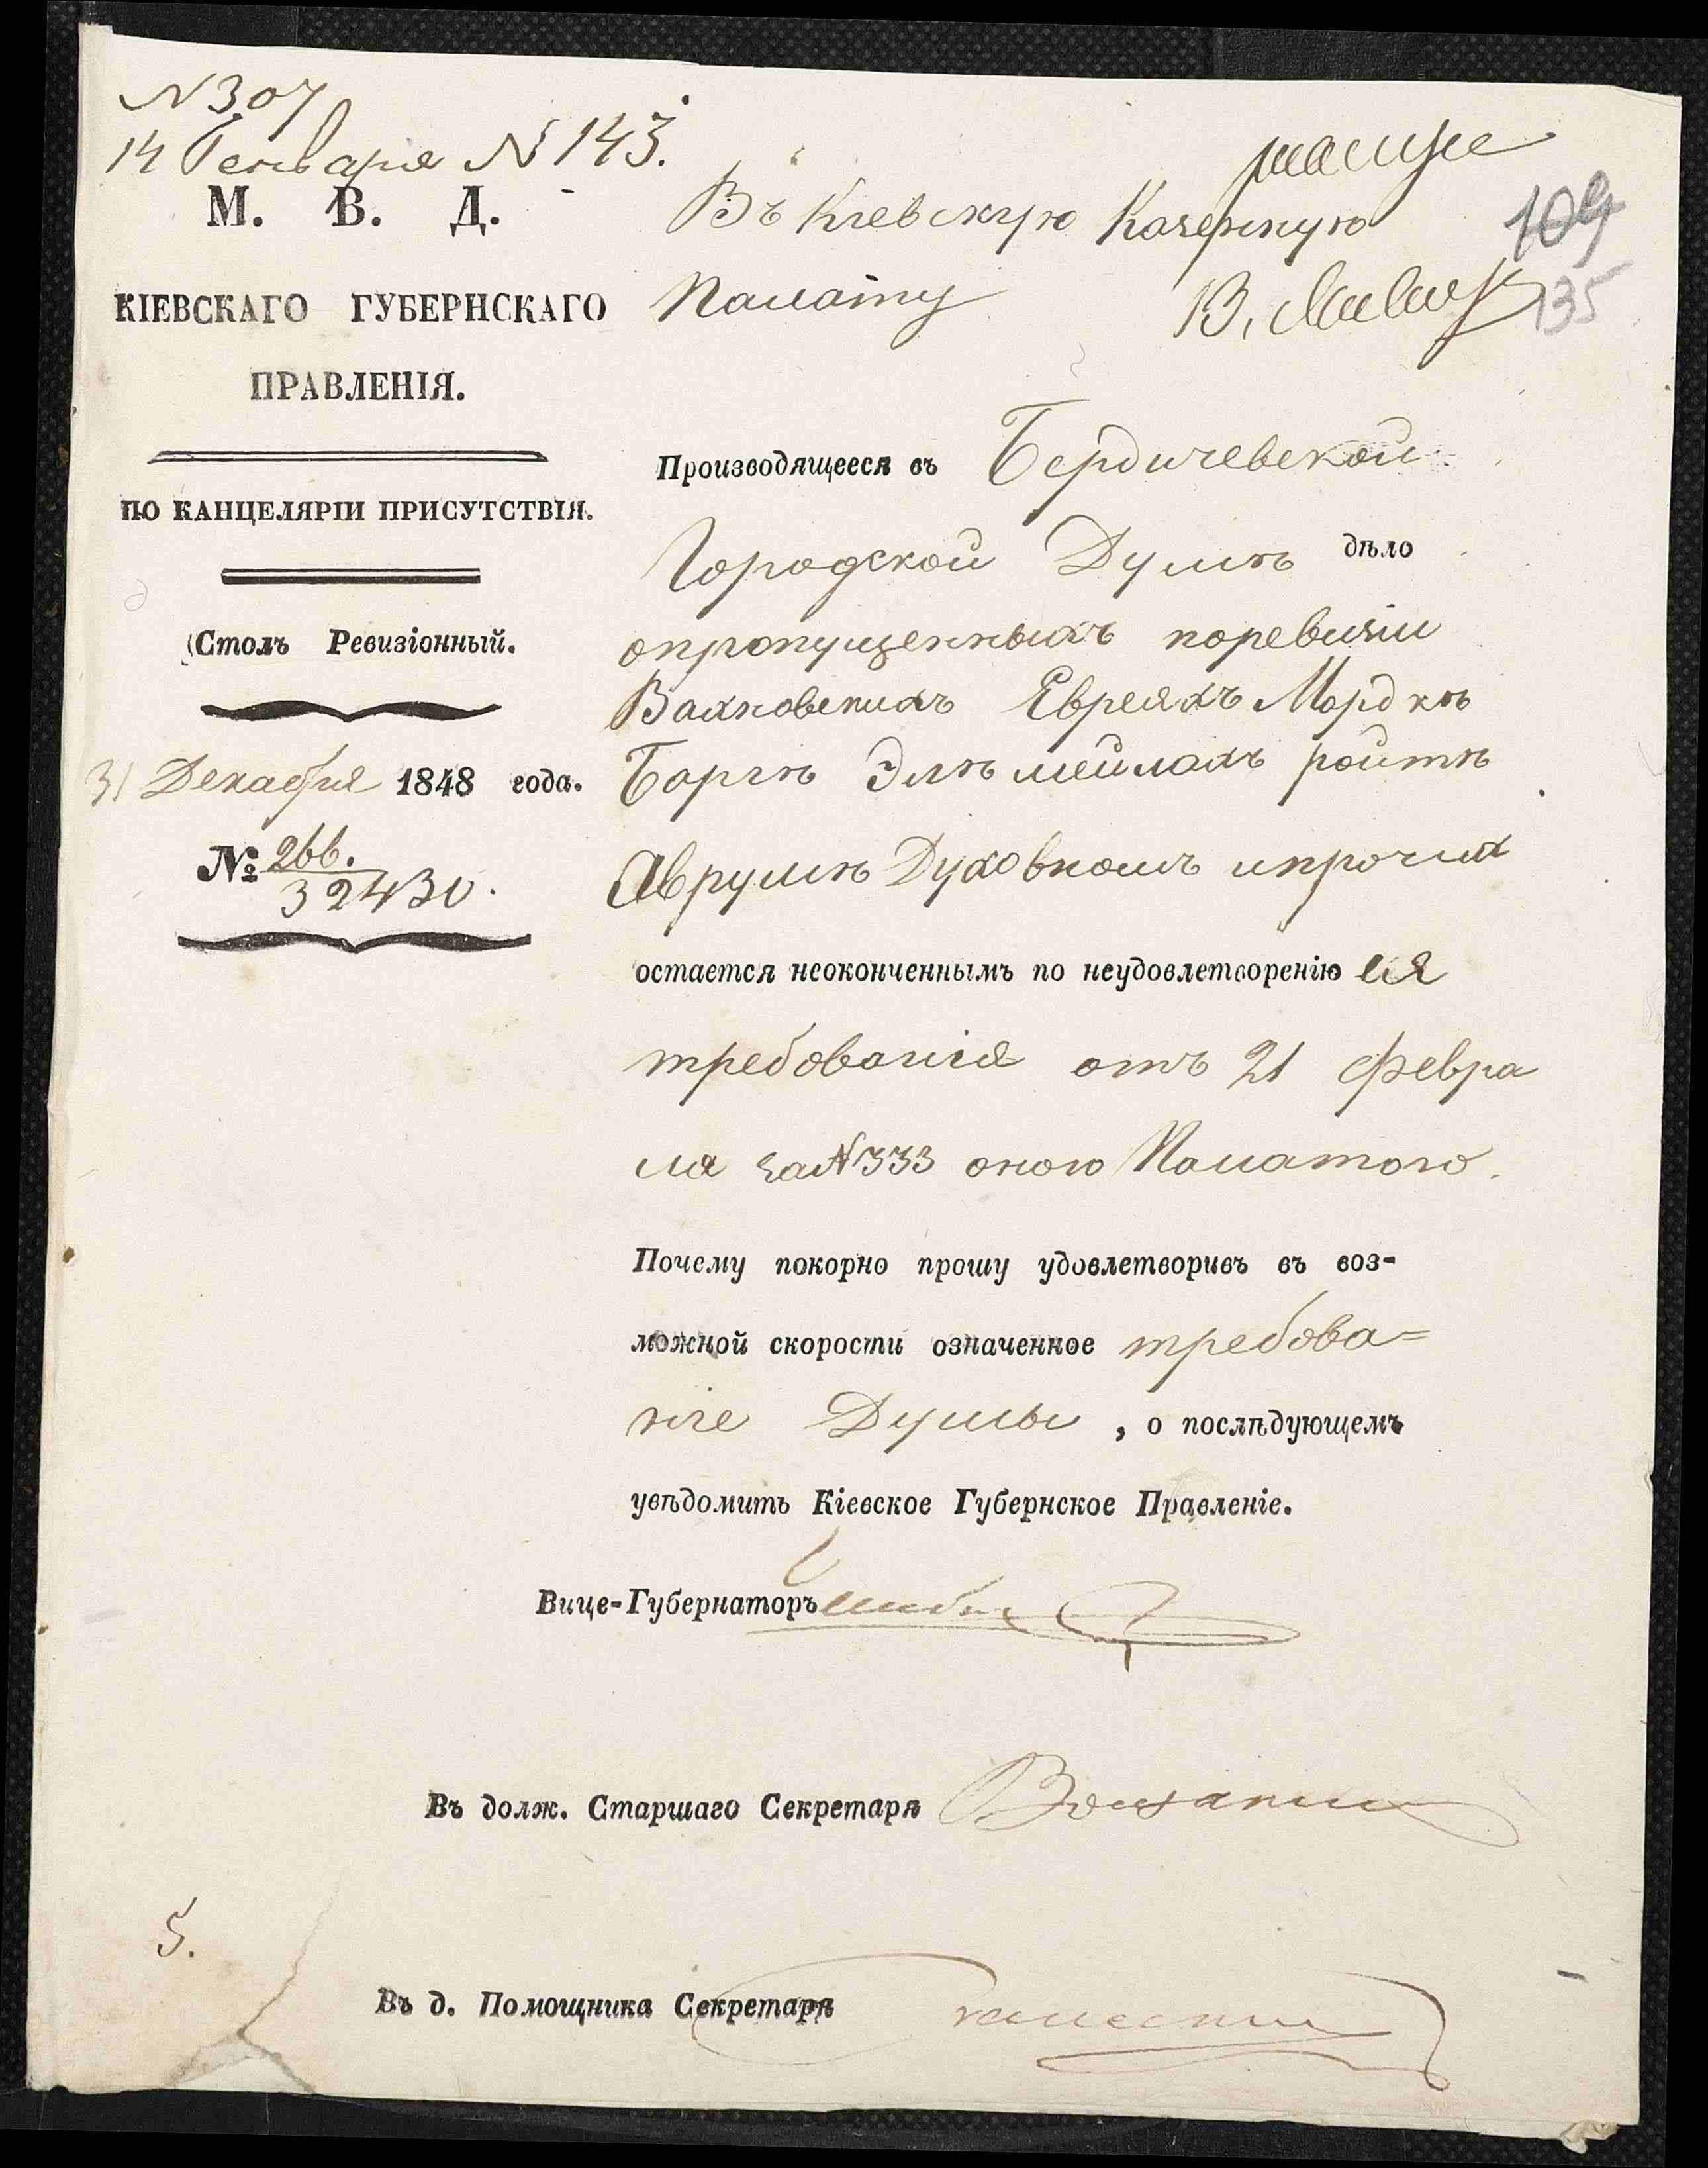 N 307
14 Генваря N 143.
М. В. Д.
КІЕВСКАГО ГУБЕРНСКАГО
ПРАВЛЕНІЯ.
ПО КАНЦЕЛЯРІИ ПРИСУТСТВІЯ.
Столъ Ревизіонный.
31 Декабря 1848 года.
№ 266.
32430.
Въ Кіевскую Казенную
Палату
109
135
Производящееся въ Бердичевской
Городской Думѣ дѣло
опропущенныхъ поревизіи
Вахновскихъ Евреяхъ Мордкѣ
Боргѣ Элѣ мейлахъ ройтѣ
Аврумѣ Духовномъ ипрочих
остается неоконченнымъ по неудовлетворенію ея
требованія отъ 21 Февра
ля за N 333 оною Палатою.
Почему покорно прошу удовлетворивъ въ воз-
можной скорости означенное требова=
ніе Думы, о послѣдующемъ
увѣдомить Кіевское Губернское Правленіе.
Вице-Губернаторъ
Въ долж. Старшаго Секретаря
5.
Въ д. Помощника Секретаря